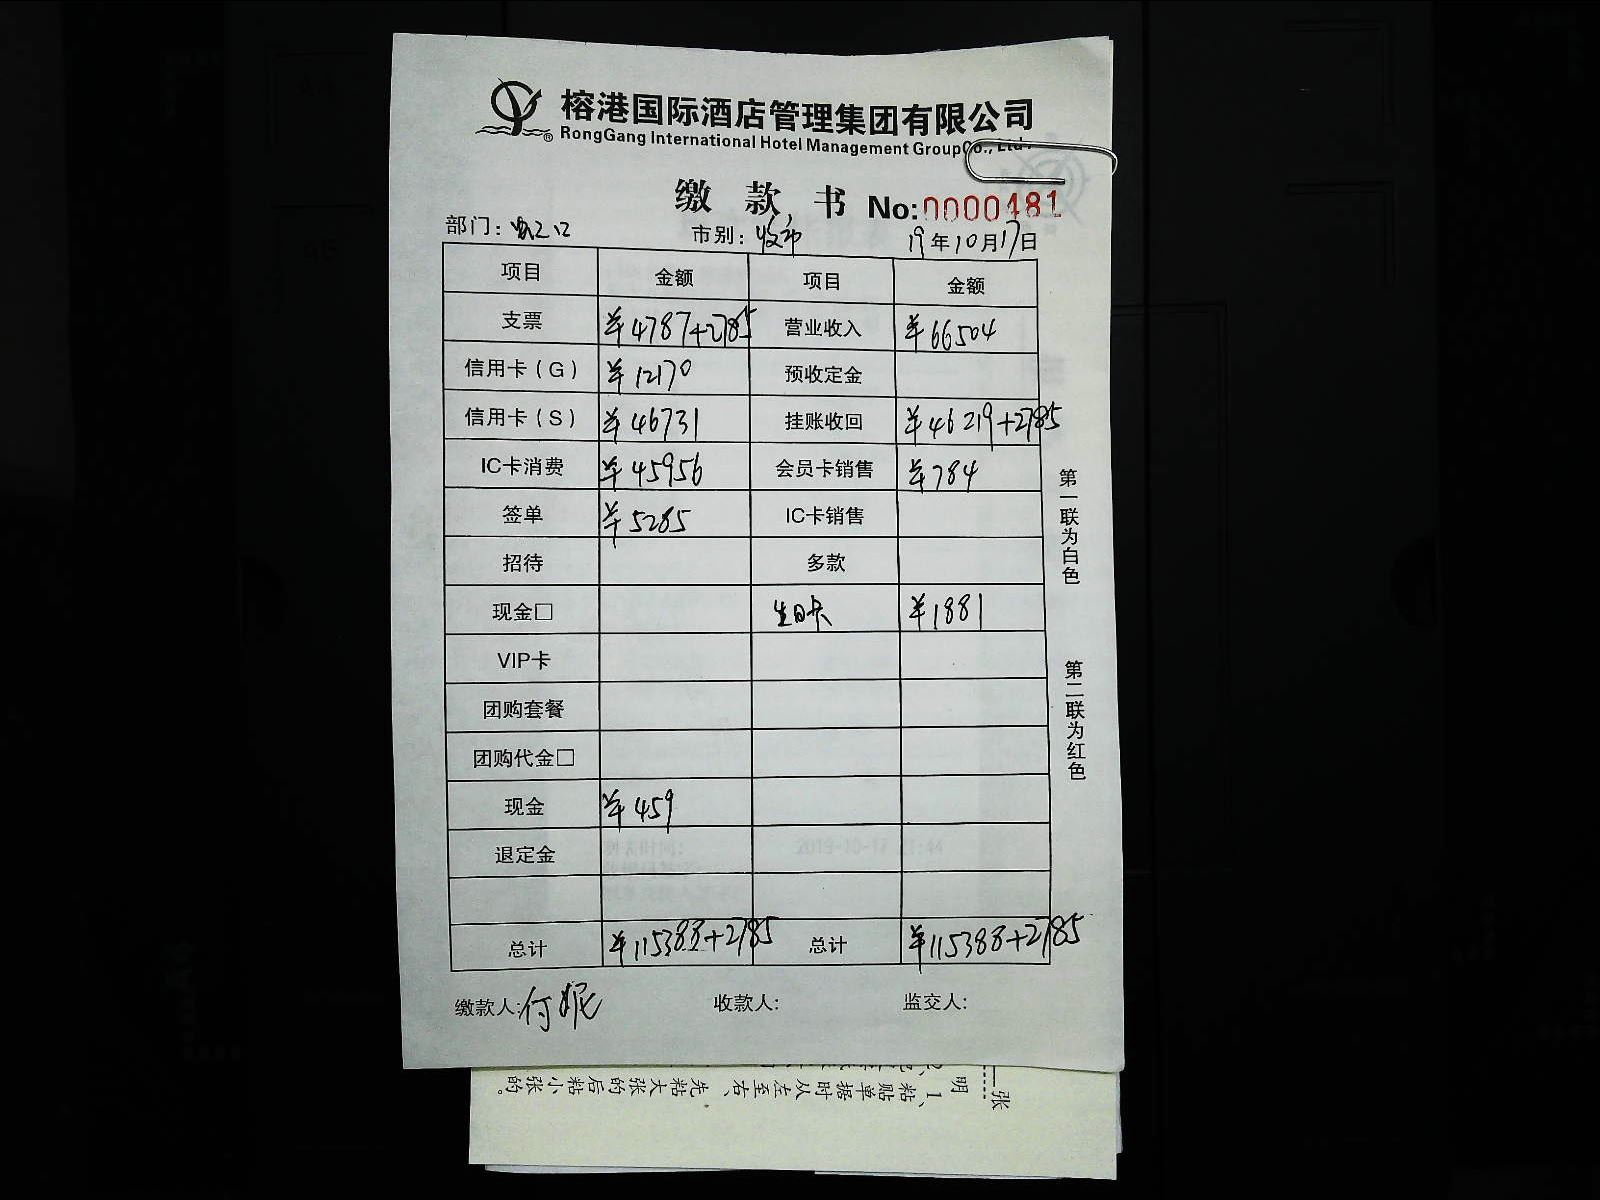 榕港国际酒店管理集团有限公司
RongGang International Hotel Management GroupCo., Ltd.
缴款书 No:0000481
部门: 市别:收市 19年10月17日
项目 金额 项目 金额
支票 ¥4787+2785 营业收入 ¥66504
信用卡(G) ¥12170 预收定金
信用卡(S) ¥46731 挂账收回 ¥46219+2785
IC卡消费 ¥45956 会员卡销售 ¥784
签单 ¥5285 IC卡销售
招待 多款
现金□ 生日卡 ¥1881
VIP卡
团购套餐
团购代金□
现金 ¥459
退定金
总计 ¥115388+2785 总计 ¥115388+2785
缴款人:付妮 收款人: 监交人:
第一联为白色
第二联为红色
张
明
1、粘贴单据时从左至右、
先粘大张的后粘小张的。